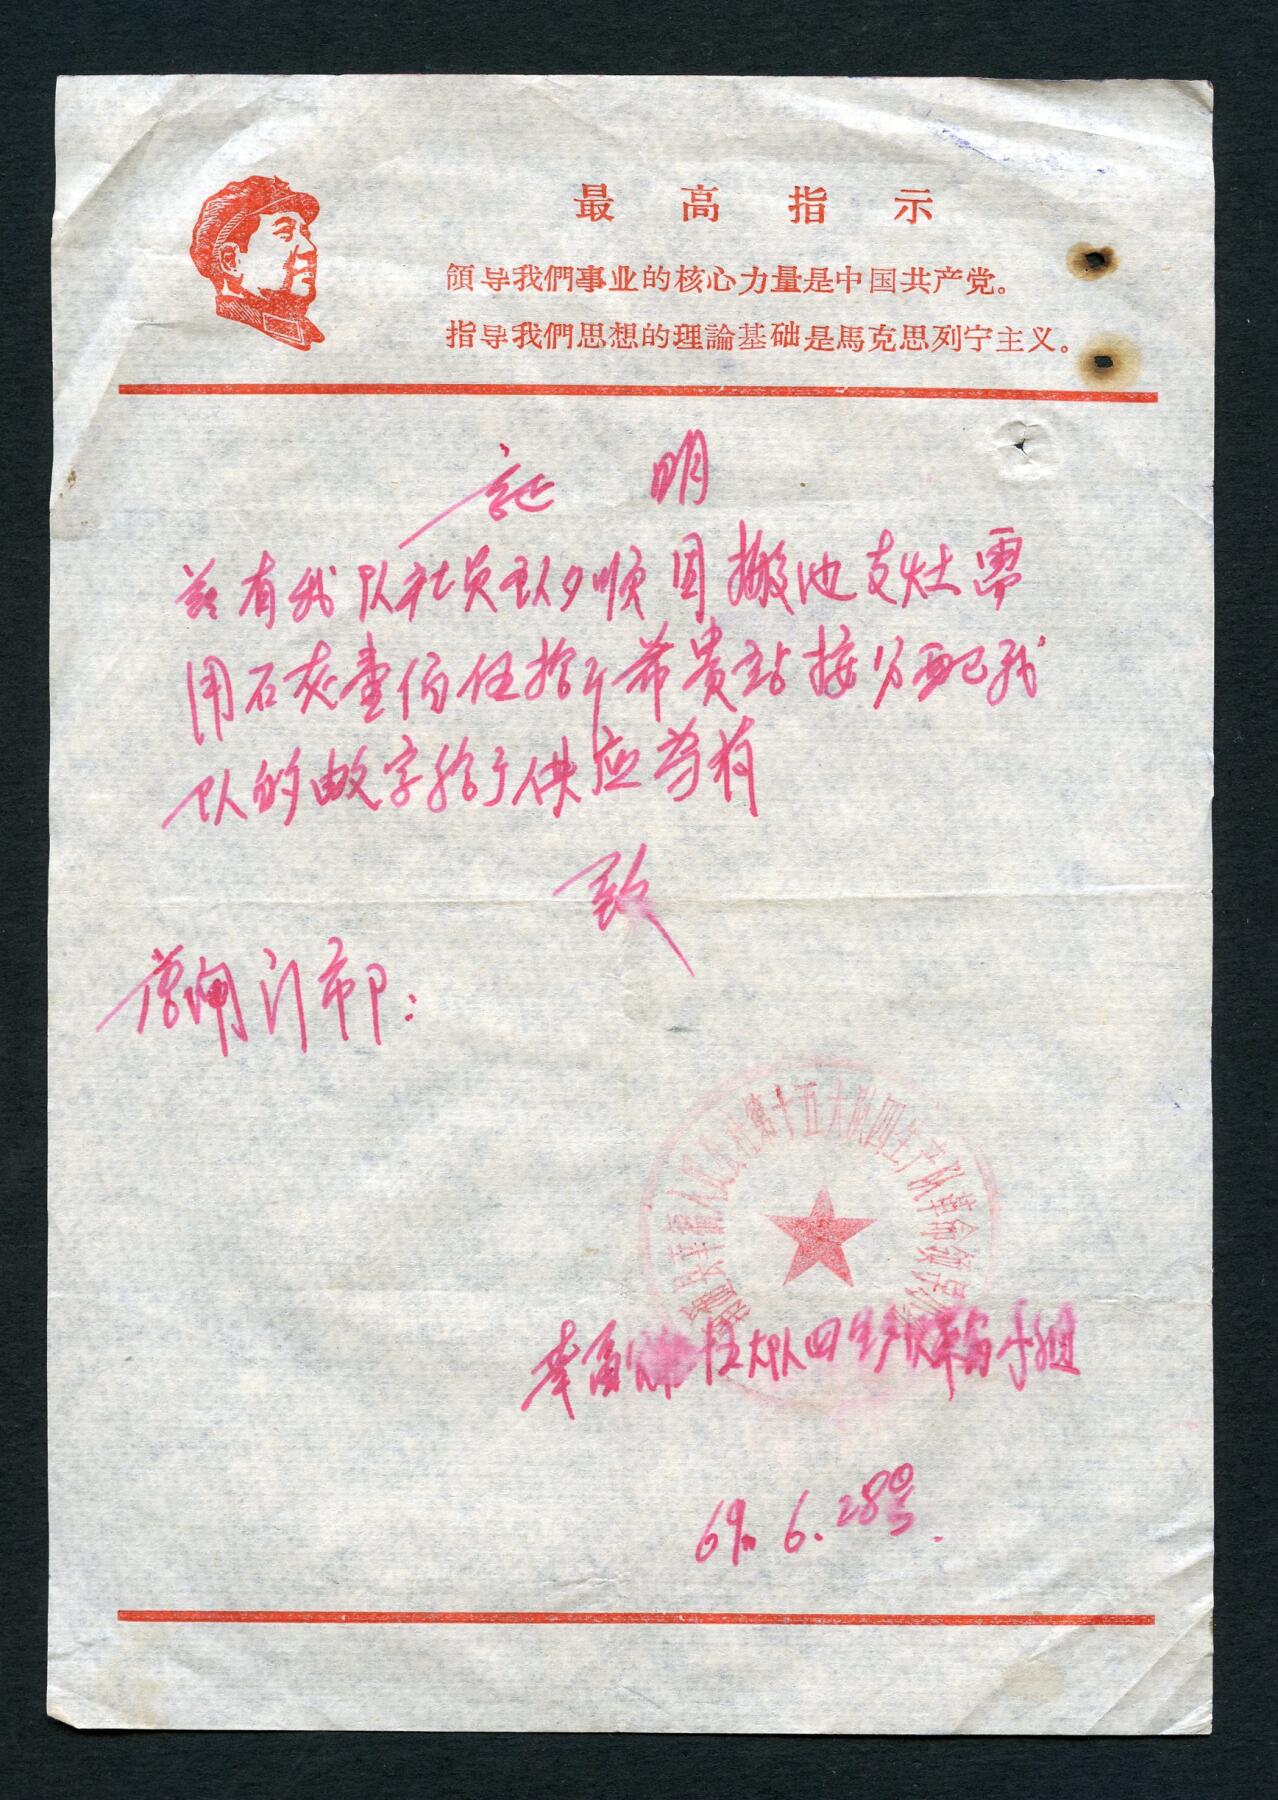 最高指示
領导我們事业的核心力量是中国共产党。
指导我們思想的理論基础是馬克思列宁主义。
証明
兹有我队社员 顺因搬 支灶需
用石灰壹佰伍拾斤希贵站按分配我
队的 字给于供应为荷
致
门市部:
人民公社第十五大队四生产队革命领导小组
幸福 伍大队四生产队革命小组
69.6.28号.